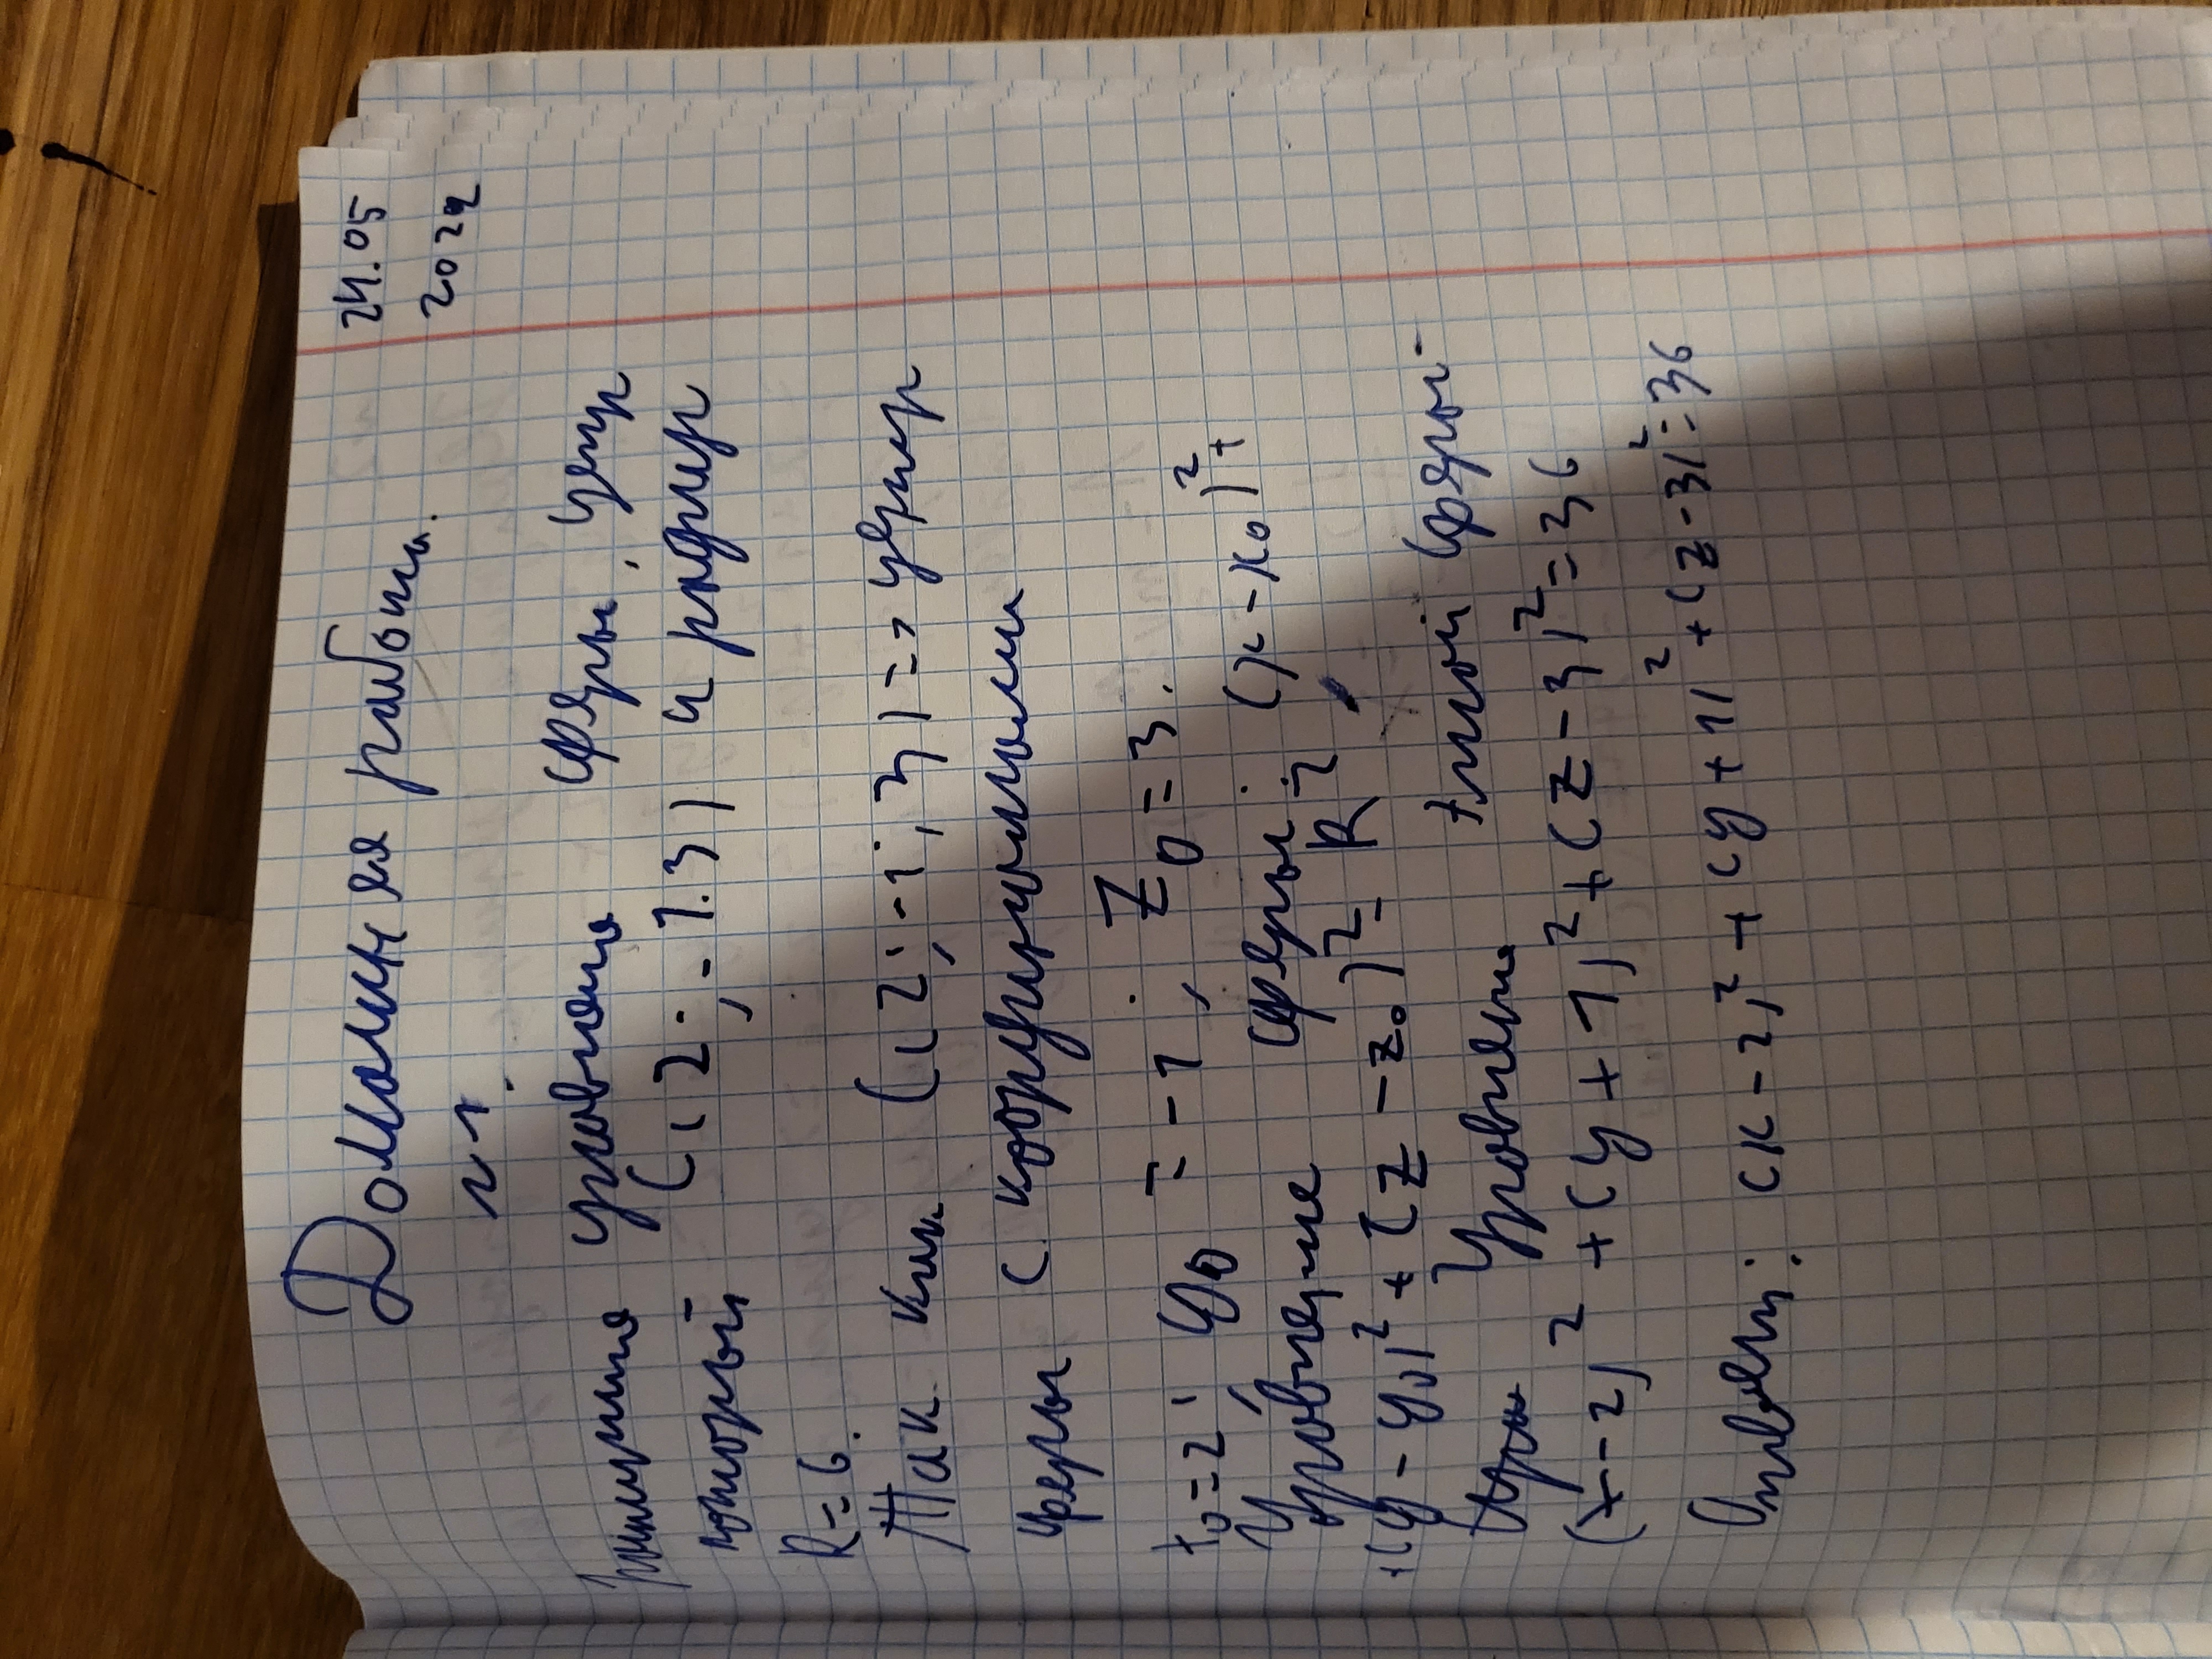 Домашняя работа.
24.05
2024
№1.
уравнение сферы, центр
которой C(2; -1. 3) и радиус
R = 6.
Так как C(2; -1; 3) => центр
сферы с координатами
x₀ = 2; y₀ = -1; z₀ = 3.
Уравнение сферы: (x - x₀)² +
+(y - y₀)² + (z - z₀)² = R²,
Уравнение этой сферы -
(x - 2)² + (y + 1)² + (z - 3)² = 36
Ответ: (x - 2)² + (y + 1)² + (z - 3)² = 36